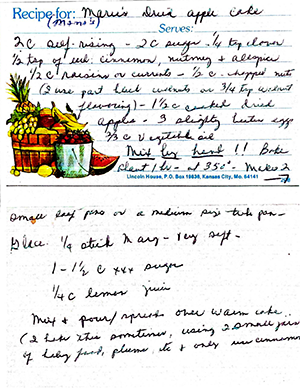 Recipe for: Marie's dried apple cake
(Mama's)
Serves:
2 C self-rising - 2 C sugar - 1/4 tsp cloves
1/2 tsp of ea. cinnamon, nutmeg & allspice
1/2 C raisins or currants - 1/2 C chopped nuts
(I use part black walnuts or 3/4 tsp walnut
flavoring) - 1 1/2 C cooked dried
apples - 3 slightly beaten eggs
2/3 C vegetable oil
Mix by hand!! Bake
about 1 hr - at 350° - Makes 2
Lincoln House, P.O. Box 19836, Kansas City, Mo. 64141
small loaf pans or a medium size tube pan -
Glaze: 1/4 stick marg - very soft -
1 - 1 1/2 C xxx sugar
1/4 C lemon juice
Mix & pour/spread over warm cake.
(I bake this sometimes, using 2 small jars
of baby food, plums, etc & only use cinnamon